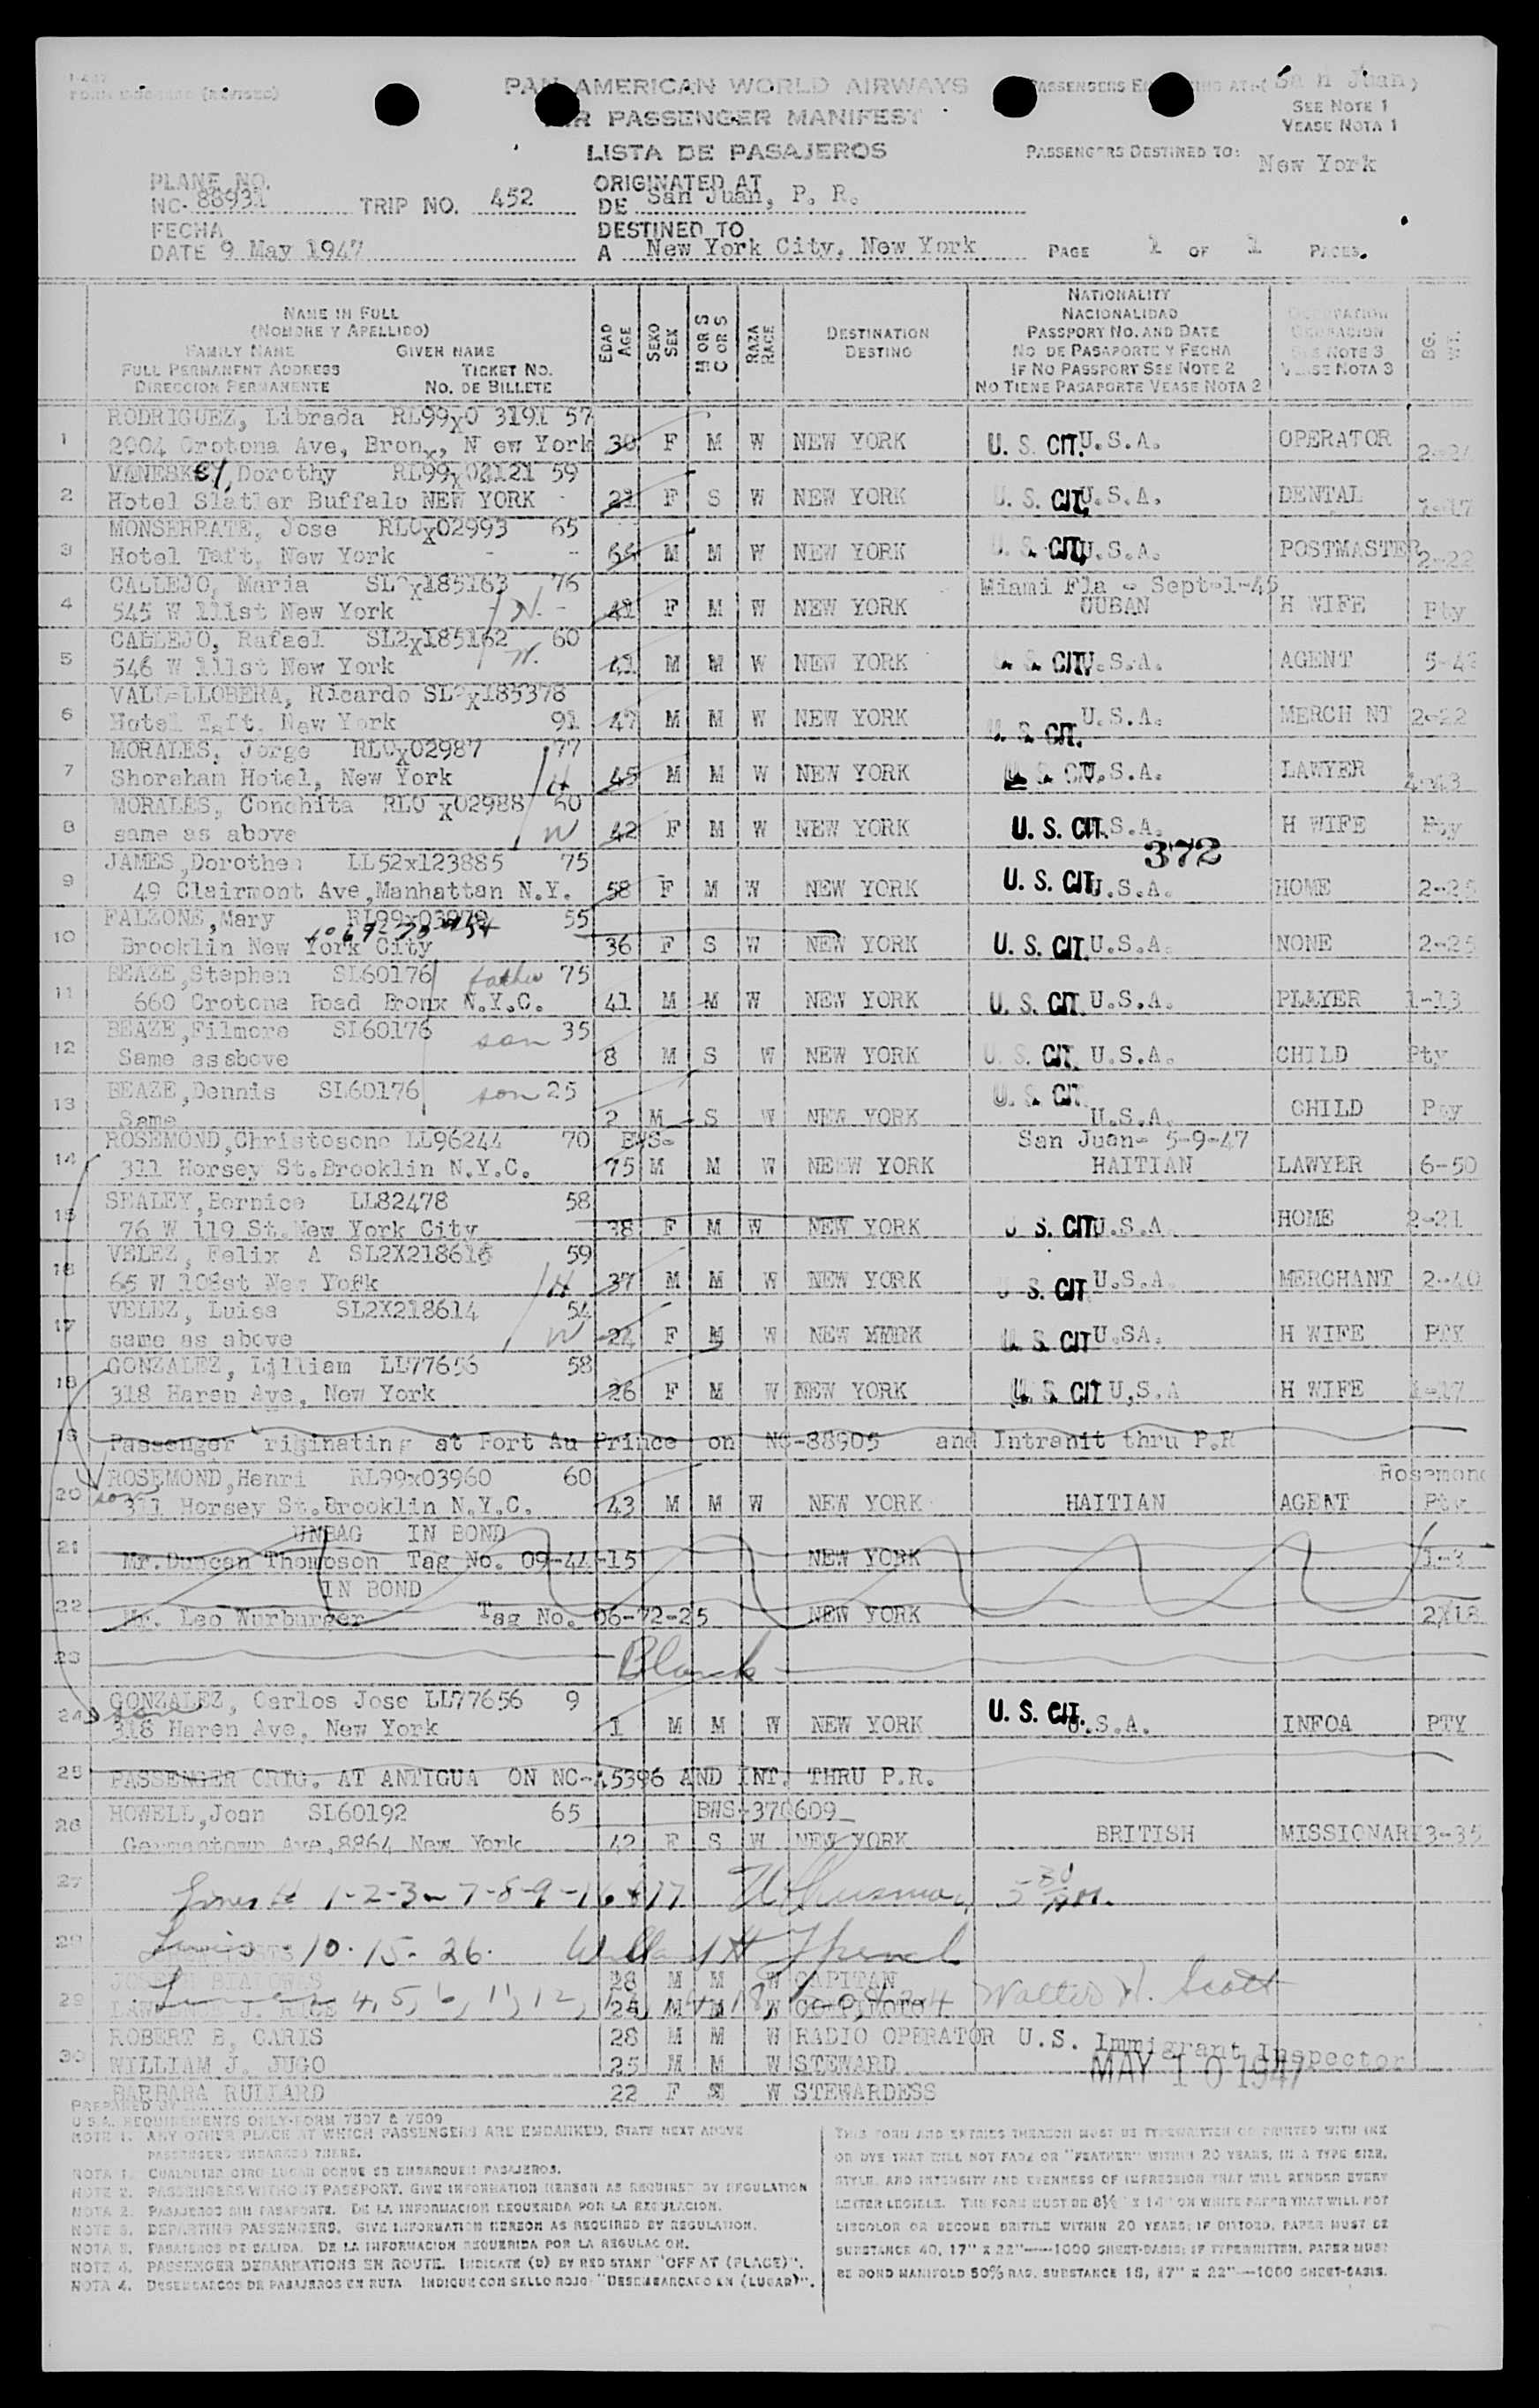 PAN AMERICAN WORLD AIRWAYS
AIR PASSENGER MANIFEST
LISTA DE PASAJEROS
San Juan,
SEE NOTE 1
VEASE NOTA 1
PASSENGERS DESTINED TO: New York
PLANE NO.
NC- 88931 TRIP NO. 452
ORIGINATED AT
DE San Juan, P. R.
FECHA
DATE 9 May 1947
DESTINED TO
A New York City, New York
PAGE 1 OF 1 PAGES.
NAME IN FULL
(NOMBRE Y APELLIDO)
FAMILY NAME GIVEN NAME
FULL PERMANENT ADDRESS TICKET NO.
DIRECCION PERMANENTE NO. DE BILLETE
EDAD AGE
SEXO SEX
M OR S
C OR S
RAZA RACE
DESTINATION
DESTINO
NATIONALITY
NACIONALIDAD
PASSPORT NO. AND DATE
NO DE PASAPORTE Y FECHA
IF NO PASSPORT SEE NOTE 2
NO TIENE PASAPORTE VEASE NOTA 2
SEE NOTE 3
VEASE NOTA 3
RODRIGUEZ, Librada RL99x0 3191 57
1 2904 Crotona Ave, Bronx, N ew York 30 F M W NEW YORK U. S. CIT. U.S.A. OPERATOR
Dorothy RL99x02121 59
2 Hotel Slatler Buffalo NEW YORK 21 F S W NEW YORK U. S. CIT. U.S.A. DENTAL
MONSERRATE, Jose RL0x02993 65
3 Hotel Taft, New York M M W NEW YORK U. S. CIT. U.S.A. POSTMASTER 2-22
CALLEJO, Maria SL2x185163 76 Miami Fla - Sept-1-45
4 545 W 111st New York 41 F M W NEW YORK CUBAN H WIFE Pty
CALLEJO, Rafael SL2x185162 60
5 546 W 111st New York 41 M M W NEW YORK U. S. CIT. U.S.A. AGENT
Ricardo SL2x185378
6 Hotel Taft, New York 91 47 M M W NEW YORK U. S. CIT. U.S.A. MERCH NT 2-22
MORALES, Jorge RL0x02987 77
7 Shoreham Hotel, New York H 45 M M W NEW YORK U. S. CIT. U.S.A. LAWYER
MORALES, Conchita RL0 x02988 60
8 same as above W 42 F M W NEW YORK U. S. CIT. U.S.A. H WIFE Pty
372
JAMES, Dorothea LL52x123885 75
9 49 Clairmont Ave, Manhattan N.Y. 58 F M W NEW YORK U. S. CIT. U.S.A. HOME 2-25
FALZONE, Mary RL99x03979 55
10 Brooklin New York City 36 F S W NEW YORK U. S. CIT. U.S.A. NONE 2-25
BEAZE, Stephen SL60176 father 75
11 660 Crotona Road Bronx N.Y.C. 41 M M W NEW YORK U. S. CIT. U.S.A. PLAYER 1-13
BEAZE, Filmore SL60176 son 35
12 Same as above 8 M S W NEW YORK U. S. CIT. U.S.A. CHILD Pty
BEAZE, Dennis SL60176 son 25
13 Same 2 M S W NEW YORK U. S. CIT. U.S.A. CHILD Pty
ROSEMOND, Christosone LL96244 70 San Juan- 5-9-47
14 311 Horsey St. Brooklin N.Y.C. 75 M M W NEEW YORK HAITIAN LAWYER 6-50
SEALEY, Bernice LL82478 58
15 76 W 119 St. New York City 38 F M W NEW YORK U S. CIT U.S.A. HOME 2-21
VELEZ, Felix A SL2X218615 59
16 65 W 108st New York H 37 M M W NEW YORK U S. CIT U.S.A. MERCHANT 2-40
VELEZ, Luisa SL2X218614 54
17 same as above W 24 F M W NEW U. S. CIT U.SA. H WIFE PTY
GONZALEZ, Lilliam LL77656 58
18 318 Haren Ave, New York 26 F M W NEW YORK U. S. CIT U,S.A H WIFE 1-17
19 Passenger riginating at Port Au Prince on NC-88905 and Intransit thru P.R
ROSEMOND, Henri RL99x03960 60 Rosemond
20 son 311 Horsey St. Brooklin N.Y.C. 43 M M W NEW YORK HAITIAN AGENT Pty
UNBAG IN BOND
21 Mr. Duncan Thompson Tag No. 09-44-15 NEW YORK 1-3
IN BOND
22 Mr. Leo Wurburger Tag No. 06-72-25 NEW YORK 2X18
23 Blank
GONZALEZ, Carlos Jose LL77656 9
24 son 318 Haren Ave, New York 1 M M W NEW YORK U. S. CIT. U.S.A. INFOA PTY
25 PASSENGER ORIG. AT ANTIGUA ON NC-45396 AND INT. THRU P.R.
HOWELL, Joan SL60192 65 BWS-370609
26 Germantown Ave, 8864 New York 42 F S W NEW YORK BRITISH MISSIONARY 3-35
27 1-2-3-7-8-9-16&17 5 30 PM.
10. 15. 26.
28 M M W CAPITAN
29 4, 5, 6, 11, 12, 25 M M W COPILOTO Walter H. Scott
ROBERT B. CARIS 28 M M W RADIO OPERATOR U.S. Immigrant Inspector
30 WILLIAM J. JUGO 25 M M W STEWARD MAY 10 1947
BARBARA RULLARD 22 F W STEWARDESS
PREPARED BY
U.S.A. REQUIREMENTS ONLY-FORM 7507 & 7509
NOTE 1. ANY OTHER PLACE AT WHICH PASSENGERS ARE EMBARKED, STATE NEXT ABOVE
PASSENGERS EMBARKED THERE.
NOTA 1. CUALQUIER OTRO LUGAR DONDE SE EMBARQUEN PASAJEROS.
NOTE 2. PASSENGERS WITHOUT PASSPORT. GIVE INFORMATION HEREON AS REQUIRED BY REGULATION
NOTA 2. PASAJEROS SIN PASAPORTE. DE LA INFORMACION REQUERIDA POR LA REGULACION.
NOTE 3. DEPARTING PASSENGERS. GIVE INFORMATION HEREON AS REQUIRED BY REGULATION.
NOTA 3. PASAJEROS DE SALIDA. DE LA INFORMACION REQUERIDA POR LA REGULACION.
NOTE 4. PASSENGER DEBARKATIONS EN ROUTE. INDICATE (D) BY RED STAMP "OFF AT (PLACE)".
NOTA 4. DESEMBARCOS DE PASAJEROS EN RUTA INDIQUE CON SELLO ROJO "DESEMBARCADO EN (LUGAR)".
THIS FORM AND ENTRIES THEREON MUST BE TYPEWRITTEN OR PRINTED WITH INK
OR DYE THAT WILL NOT FADE OR "FEATHER" WITHIN 20 YEARS, IN A TYPE SIZE,
STYLE, AND INTENSITY AND EVENNESS OF IMPRESSION THAT WILL RENDER EVERY
LETTER LEGIBLE. THE FORM MUST BE 8½" X 14" ON WHITE PAPER THAT WILL NOT
DISCOLOR OR BECOME BRITTLE WITHIN 20 YEARS; IF DITTOED, PAPER MUST BE
SUBSTANCE 40, 17" X 22"—1000 SHEET-BASIS; IF TYPEWRITTEN, PAPER MUST
BE BOND MANIFOLD 50% RAG, SUBSTANCE 16, 17" X 22"—1000 SHEET-BASIS.